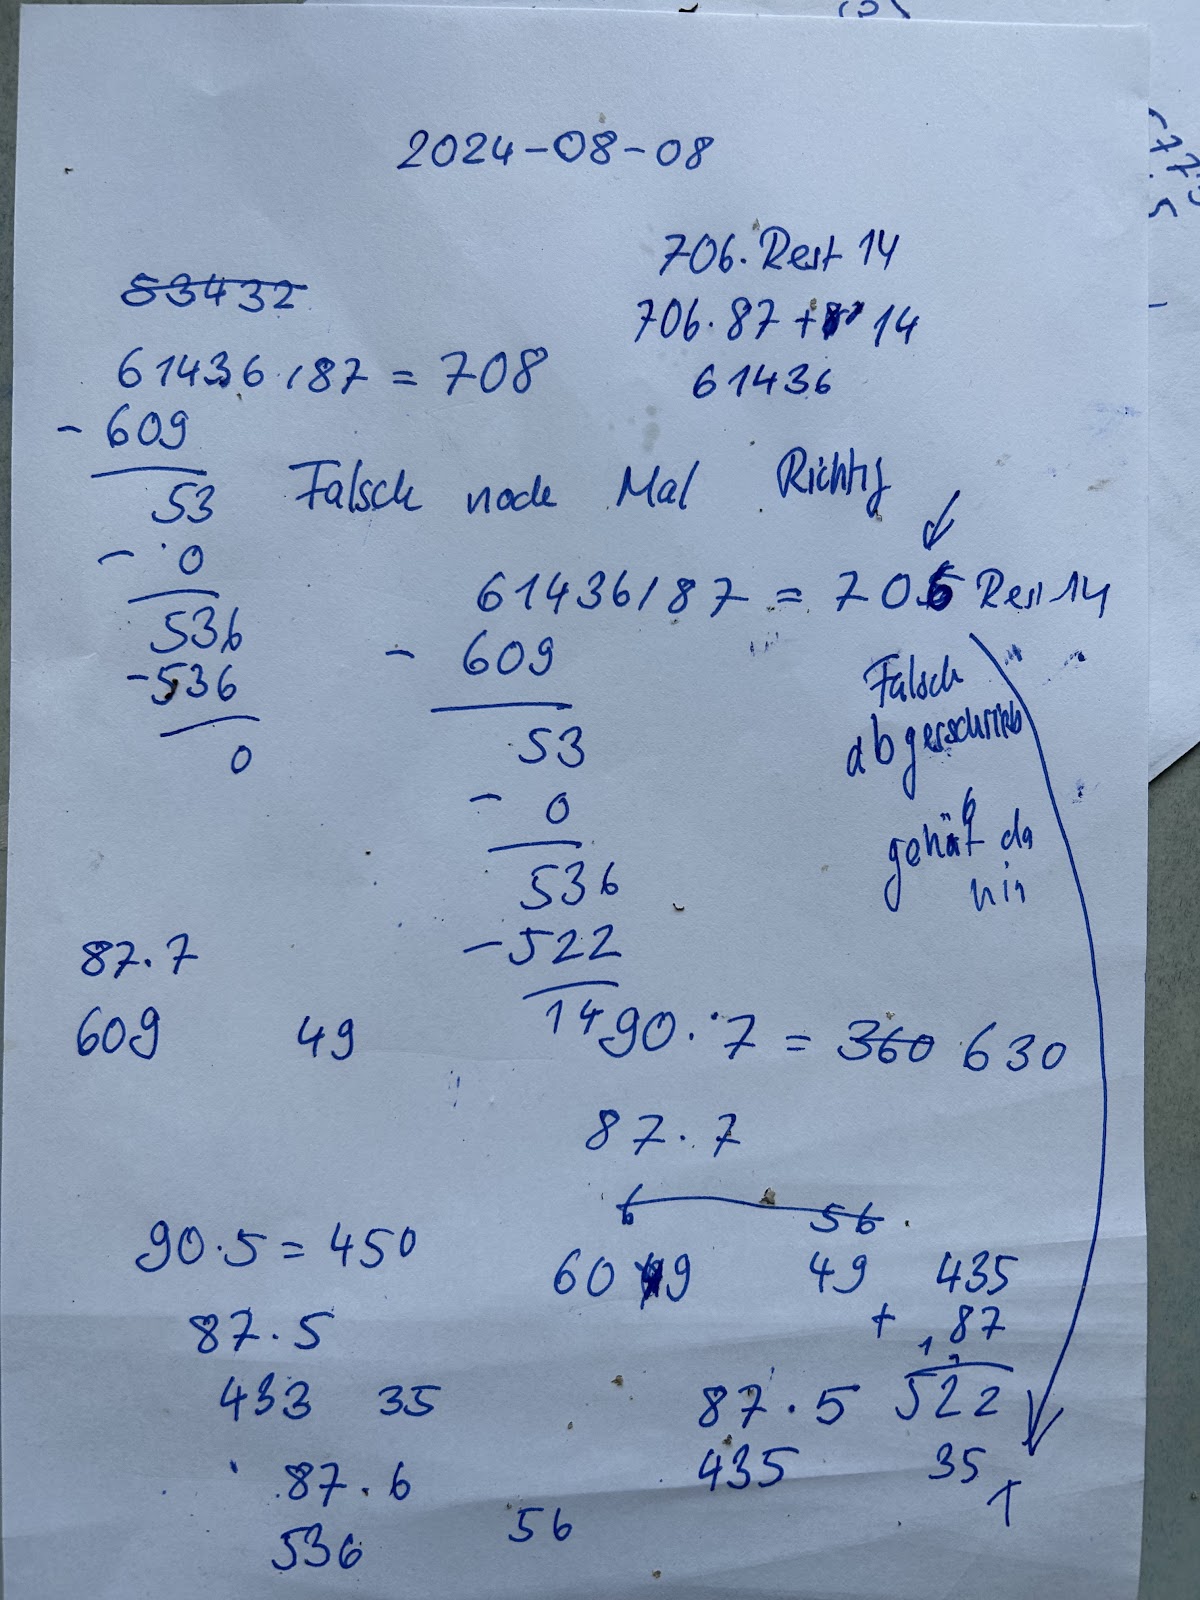 2024-08-08
706. Rest 14
706.87 + 14
61436
53432
61436 / 87 = 708
- 609
53
- 0
536
-536
0
Falsch noch Mal Richtig
61436 / 87 = 706 Rest 14
- 609
53
- 0
536
- 522
14
Falsch
abgerschrieb
6
gehät da
hin
87.7
609 49
90.7 = 360 630
87.7
6 56
60 9 49
435
+ 87
1 1
522
90.5 = 450
87.5
433 35
87.6
536 56
87.5
435 35